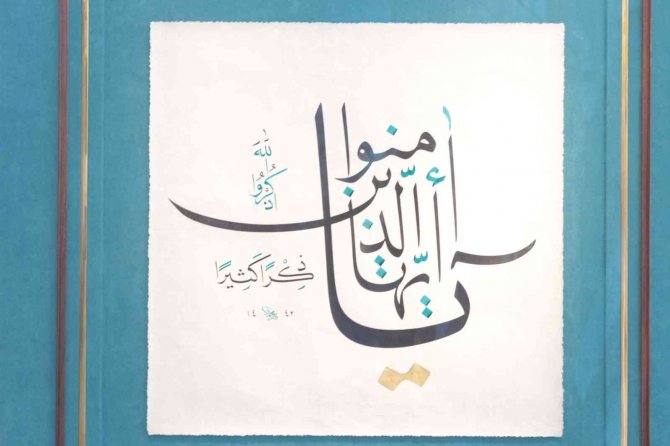 يا أيّها الّذين آمنوا
اذْكُرُوا اللهَ
ذِكْرًا كَثِيرًا
١٤ ٤٢